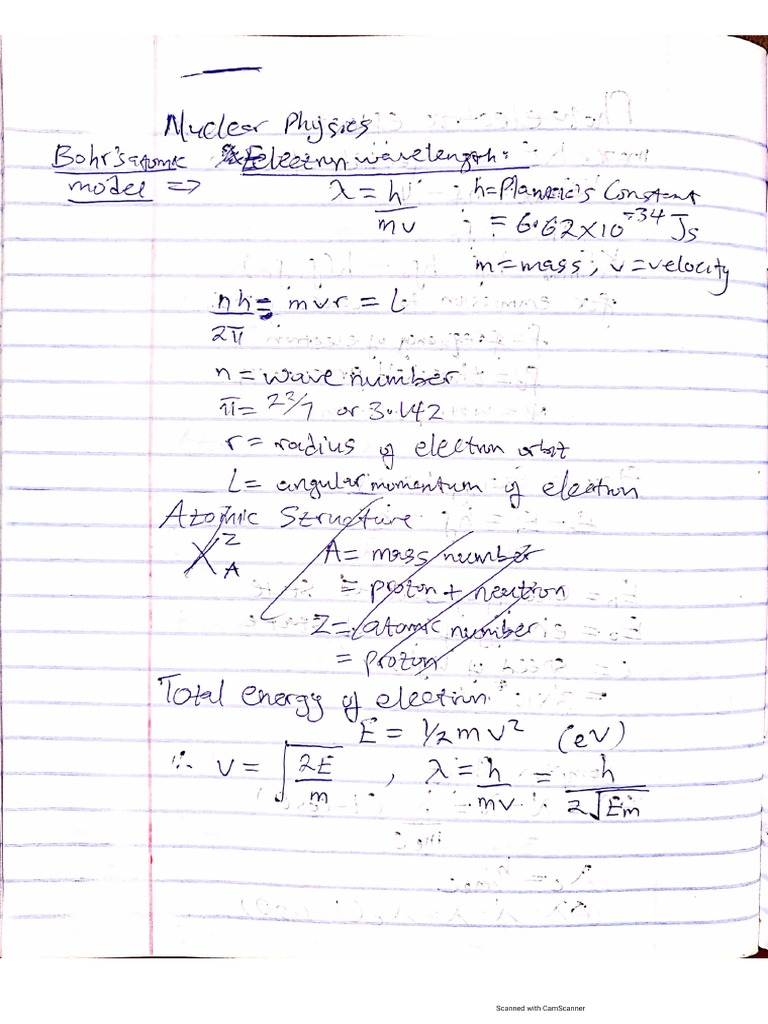 Nuclear Physics
Bohr's atomic model => Electron wavelength:
λ = h/mv ; h = Planck's Constant
= 6.62 × 10^-34 Js
m = mass, v = velocity
nh/2π = mvr = L
n = wave number
π = 22/7 or 3.142
r = radius of electron orbit
L = angular momentum of electron
Atomic Structure
X^Z_A A = mass number
= proton + neutron
Z = atomic number
= proton
Total energy of electron:
E = 1/2 mv² (eV)
∴ v = √(2E/m) , λ = h/mv = h/2√Em
Scanned with CamScanner